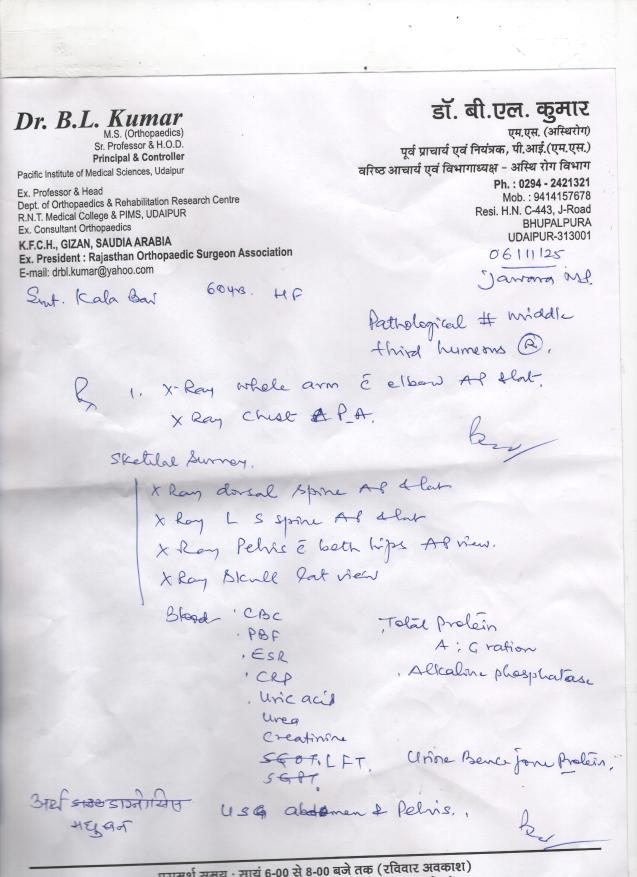 Dr. B.L. Kumar
M.S. (Orthopaedics)
Sr. Professor & H.O.D.
Principal & Controller
Pacific Institute of Medical Sciences, Udaipur
Ex. Professor & Head
Dept. of Orthopaedics & Rehabilitation Research Centre
R.N.T. Medical College & PIMS, UDAIPUR
Ex. Consultant Orthopaedics
K.F.C.H., GIZAN, SAUDIA ARABIA
Ex. President : Rajasthan Orthopaedic Surgeon Association
E-mail: drbl.kumar@yahoo.com
डॉ. बी.एल. कुमार
एम.एस. (अस्थिरोग)
पूर्व प्राचार्य एवं नियंत्रक, पी.आई.(एम.एस.)
वरिष्ठ आचार्य एवं विभागाध्यक्ष - अस्थि रोग विभाग
Ph. : 0294 - 2421321
Mob. : 9414157678
Resi. H.N. C-443, J-Road
BHUPALPURA
UDAIPUR-313001
06/11/25
Jawara M.P.
Smt. Kala Bai 60yrs. HF
Pathological # middle
third humerus (R).
Rx 1. X-Ray whole arm c̄ elbow AP & lat.
X Ray Chest P.A.
Sketilal Survey.
X Ray dorsal spine AP & lat
X Ray L S spine AP & lat
X Ray Pelvis c̄ both hips AP view.
X Ray Skull lat view
Blood . CBC
. PBF
. ESR
. CRP
. Uric acid
Urea
Creatinine
SGOT. LFT.
SGPT.
. Total Protein
A : G ration
. Alkaline phosphatase
Urine Bence Jone Protein.
USG abdomen & Pelvis.
अर्थ डाग्नोसिस
मधुबन
परामर्श समय : सायं 6-00 से 8-00 बजे तक (रविवार अवकाश)